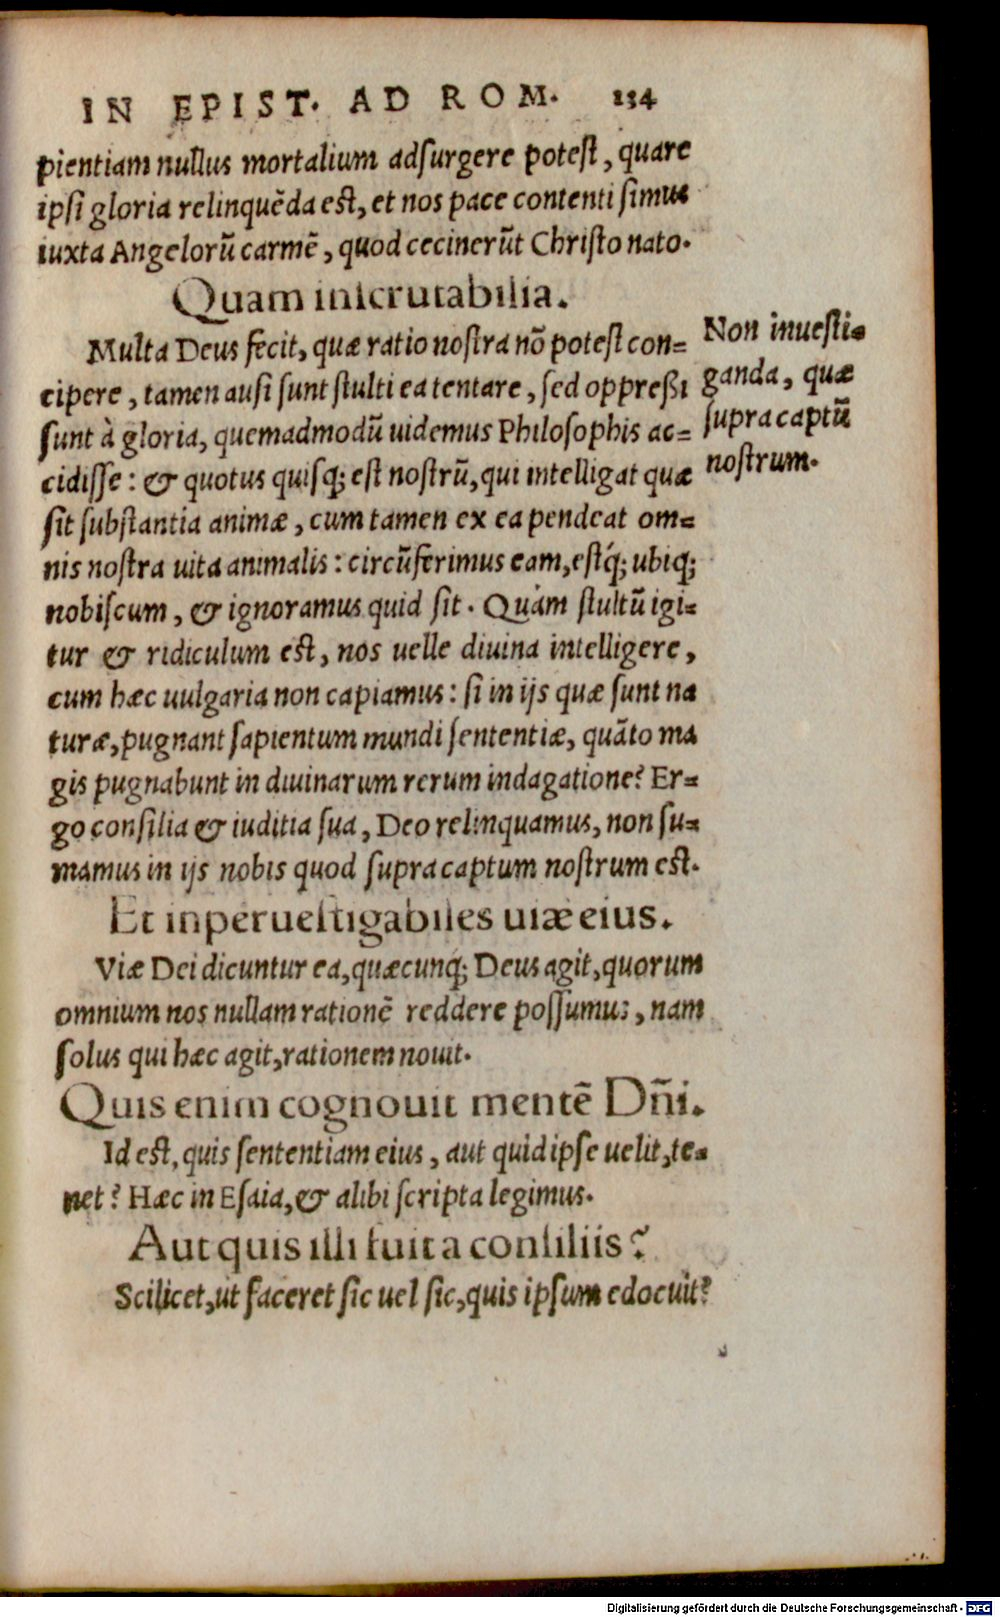 IN EPIST. AD ROM. 134
pientiam nullus mortalium adsurgere potest, quare
ipsi gloria relinquēda est, et nos pace contenti simus
iuxta Angelorū carmē, quod cecinerūt Christo nato.
Quam inscrutabilia.
Multa Deus fecit, quæ ratio nostra nō potest con=
cipere, tamen ausi sunt stulti ea tentare, sed oppreßi
sunt à gloria, quemadmodū uidemus Philosophis ac=
cidisse: & quotus quisq; est nostrū, qui intelligat quæ
sit substantia animæ, cum tamen ex ea pendeat om=
nis nostra uita animalis: circūferimus eam, estq́; ubiq;
nobiscum, & ignoramus quid sit. Quàm stultū igi=
tur & ridiculum est, nos uelle diuina intelligere,
cum hæc uulgaria non capiamus: si in ijs quæ sunt na
turæ, pugnant sapientum mundi sententiæ, quāto ma
gis pugnabunt in diuinarum rerum indagatione? Er=
go consilia & iuditia sua, Deo relinquamus, non su=
mamus in ijs nobis quod supra captum nostrum est.
Et inperuestigabiles uiæ eius.
Viæ Dei dicuntur ea, quæcunq; Deus agit, quorum
omnium nos nullam rationē reddere possumus, nam
solus qui hæc agit, rationem nouit.
Quis enim cognouit mentē Dñi.
Id est, quis sententiam eius, aut quid ipse uelit, te=
net? Hæc in Esaia, & alibi scripta legimus.
Aut quis illi fuit a consiliis?
Scilicet, ut faceret sic uel sic, quis ipsum edocuit?
Non inuesti=
ganda, quæ
supra captū
nostrum.
Digitalisierung gefördert durch die Deutsche Forschungsgemeinschaft - DFG